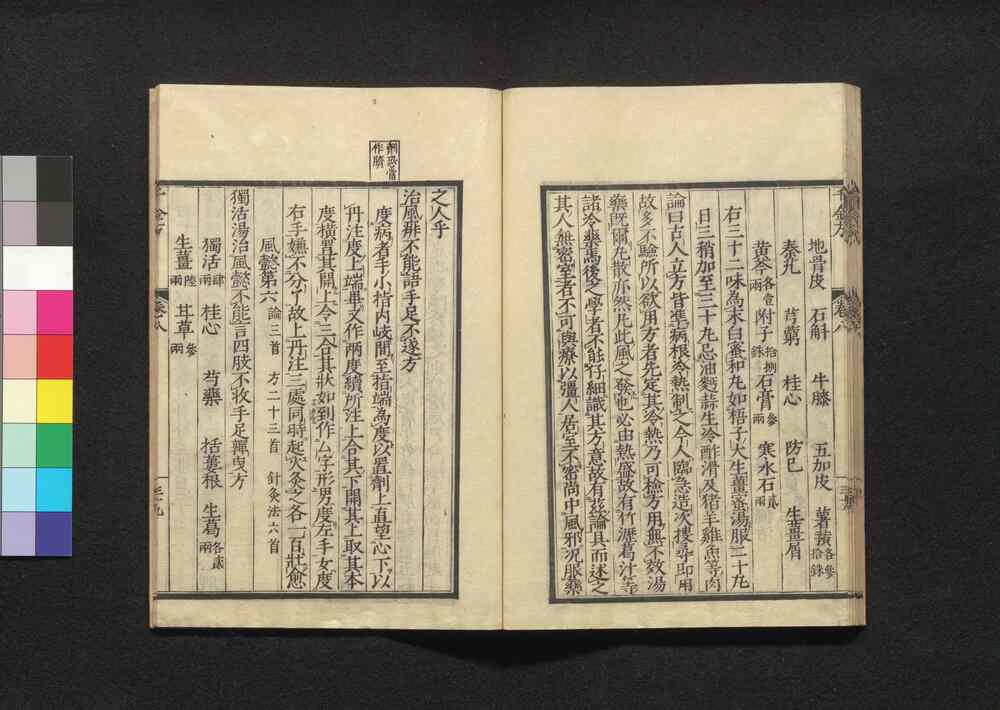 地骨皮 石斛 牛膝 五加皮 薯蕷各參拾銖
秦艽 芎藭 桂心 防已 生薑屑
黃芩各壹兩 附子拾捌銖 石膏參兩 寒水石貳兩
右三十二味為末白蜜和丸如梧子大生薑蜜湯服二十丸
日三稍加至三十丸忌油麫蒜生冷酢滑及猪羊雞魚等肉
論曰古人立方皆準病根冷熱制之今人臨急造次搜尋即用
故多不驗所以欲用方者先定其冷熱乃可檢方用無不效湯
藥既爾丸散亦然凡此風之發也必由熱盛故有竹瀝葛汁等
諸冷藥焉後之學者不能仔細識其方意故有茲論具而述之
其人無密室者不可與療以彊人居室不密尚中風邪況服藥
之人乎
劑恐當
作臍
治風痱不能語手足不遂方
度病者手小指内岐間至指端為度以置劑上直望心下以
丹注度上端畢又作兩度續所注上合其下開其上取其本
度橫置其開上令三合其狀如到作厶字形男度左手女度
右手嫌不分了故上丹注三處同時起火灸之各一百壯愈
風懿第六 論三首 方二十三首 針灸法六首
獨活湯治風懿不能言四肢不收手足嚲曳方
獨活肆兩 桂心 芍藥 栝蔞根 生葛各貳兩
生薑陸兩 甘草參兩
千金方 卷八